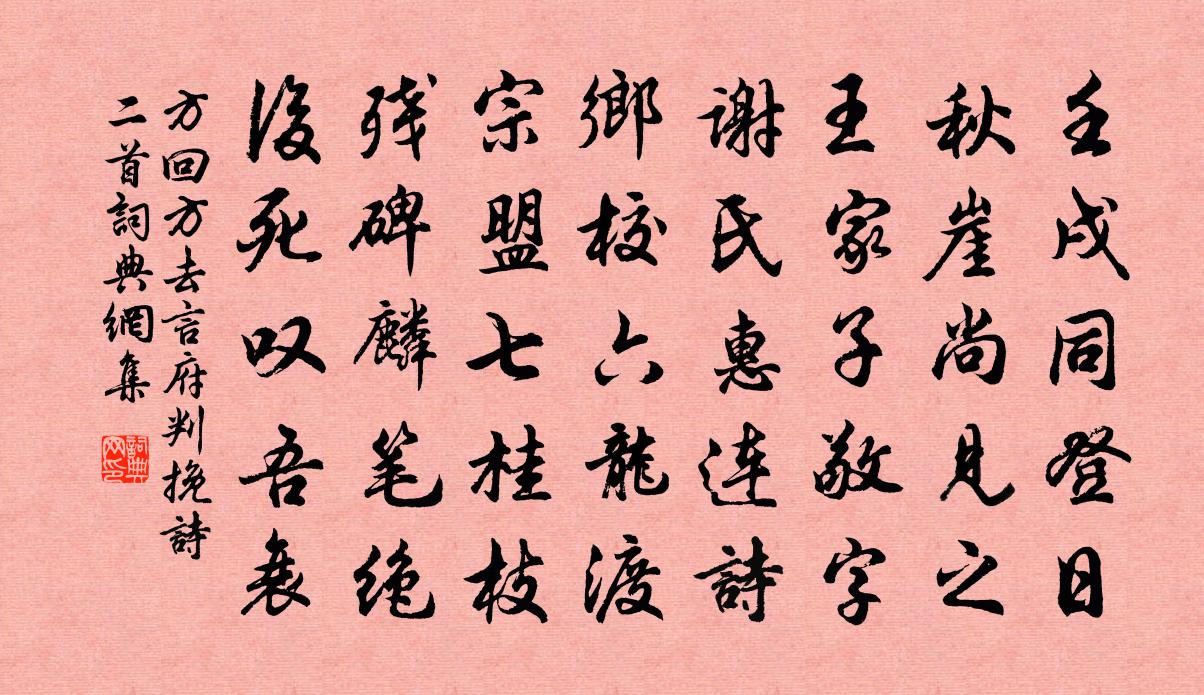 壬戌同登日
秋崖尚见之
王家子敬字
谢氏惠连詩
鄉校六龍渡
宗盟七桂枝
残碑麟笔绝
後死叹吾衰
方回方去言府判挽詩
二首詞典網集
詞典网印